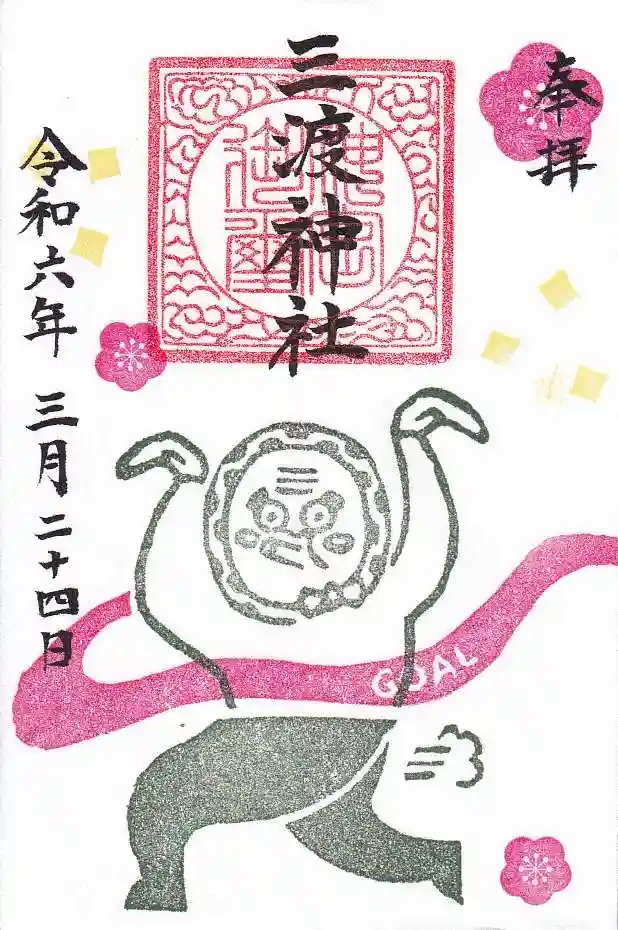 奉拝
三渡神社
令和六年 三月二十四日
GOAL